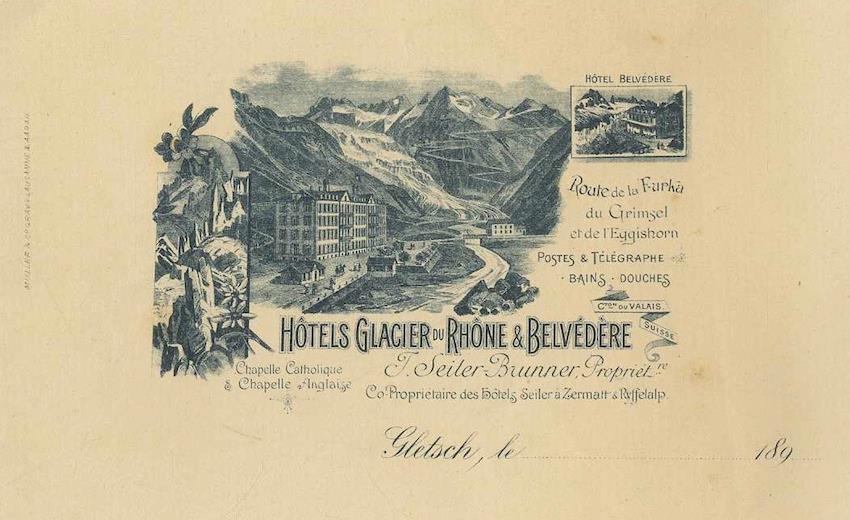 HÔTEL BELVÉDERE
Route de la Furka
du Grimsel
et de l'Eggishorn
POSTES & TÉLÉGRAPHE
BAINS · DOUCHES
CTON DU VALAIS
SUISSE
HÔTELS GLACIER DU RHÔNE & BELVÉDÈRE
Chapelle Catholique
& Chapelle Anglaise
J. Seiler-Brunner, Propriétre
Co-Propriétaire des Hôtels Seiler à Zermatt & Ryffelalp.
Gletsch, le 189
MULLER &
LAUSANNE & AARAU